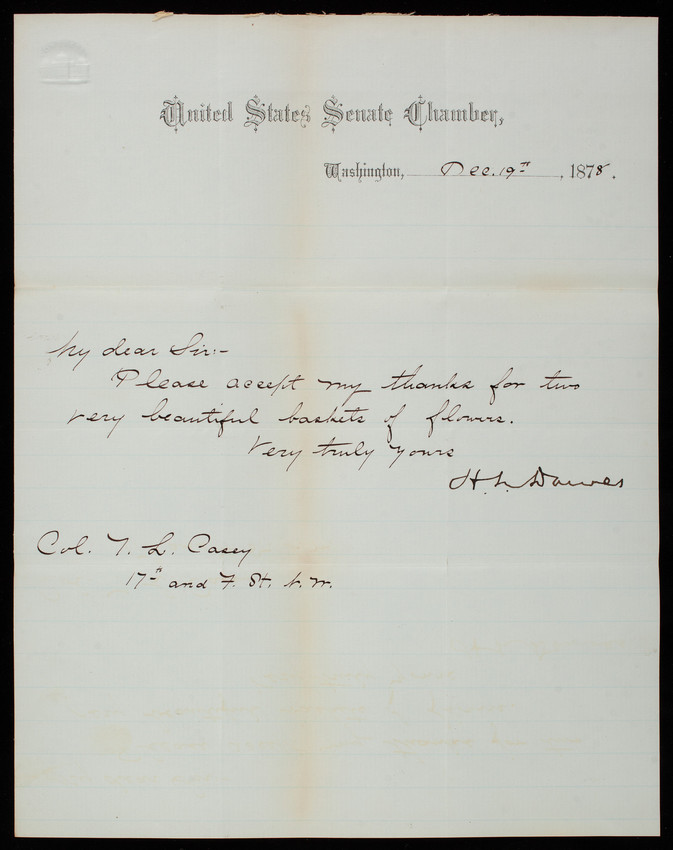 United States Senate Chamber,
Washington, Dec. 19th, 1878.
My dear Sir:-
Please accept my thanks for two
very beautiful baskets of flowers.
Very truly yours
H. L. Dawes
Col. T. L. Casey
17th and F. St. N. W.